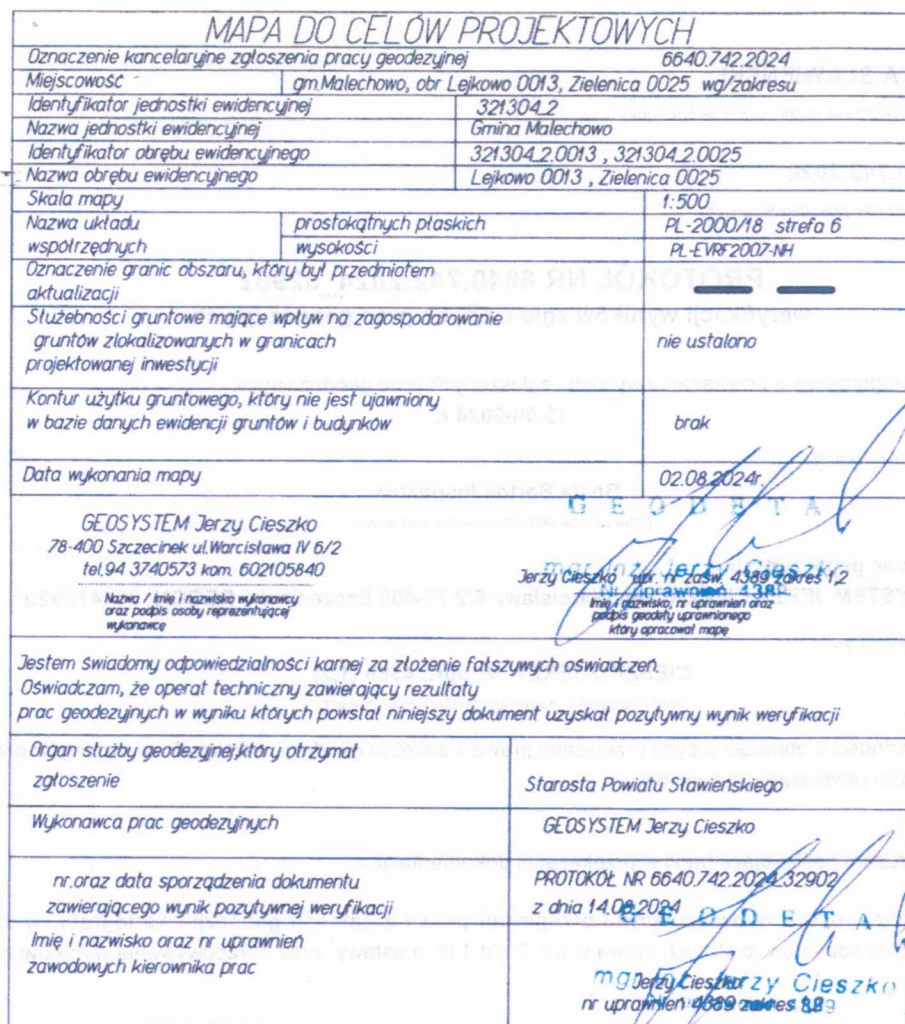 MAPA DO CELÓW PROJEKTOWYCH
Oznaczenie kancelaryjne zgłoszenia pracy geodezyjnej 6640.742.2024
Miejscowość gm.Malechowo, obr Lejkowo 0013, Zielenica 0025 wg/zakresu
Identyfikator jednostki ewidencyjnej 321304_2
Nazwa jednostki ewidencyjnej Gmina Malechowo
Identyfikator obrębu ewidencyjnego 321304_2.0013 , 321304_2.0025
Nazwa obrębu ewidencyjnego Lejkowo 0013 , Zielenica 0025
Skala mapy 1:500
Nazwa układu prostokątnych płaskich PL-2000/18 strefa 6
współrzędnych wysokości PL-EVRF2007-NH
Oznaczenie granic obszaru, który był przedmiotem
aktualizacji
Służebności gruntowe mające wpływ na zagospodarowanie
gruntów zlokalizowanych w granicach nie ustalono
projektowanej inwestycji
Kontur użytku gruntowego, który nie jest ujawniony
w bazie danych ewidencji gruntów i budynków brak
Data wykonania mapy 02.08.2024r.
GEODETA
GEOSYSTEM Jerzy Cieszko
78-400 Szczecinek ul.Warcisława IV 6/2
tel.94 3740573 kom. 602105840
mgr inż. Jerzy Cieszko
Jerzy Cieszko upr. nr zaśw. 4389 zakres 1,2
Nazwa / Imię i nazwisko wykonawcy
oraz podpis osoby reprezentującej
wykonawcę
Imię i nazwisko, nr uprawnień oraz
podpis geodety uprawnionego
który opracował mapę
Jestem świadomy odpowiedzialności karnej za złożenie fałszywych oświadczeń.
Oświadczam, że operat techniczny zawierający rezultaty
prac geodezyjnych w wyniku których powstał niniejszy dokument uzyskał pozytywny wynik weryfikacji
Organ służby geodezyjnej,który otrzymał
zgłoszenie Starosta Powiatu Sławieńskiego
Wykonawca prac geodezyjnych GEOSYSTEM Jerzy Cieszko
nr.oraz data sporządzenia dokumentu PROTOKÓŁ NR 6640.742.2024_32902
zawierającego wynik pozytywnej weryfikacji z dnia 14.08.2024
GEODETA
Imię i nazwisko oraz nr uprawnień
zawodowych kierownika prac
mgr inż. Jerzy Cieszko
Jerzy Cieszko
nr uprawnień 4389 zakres